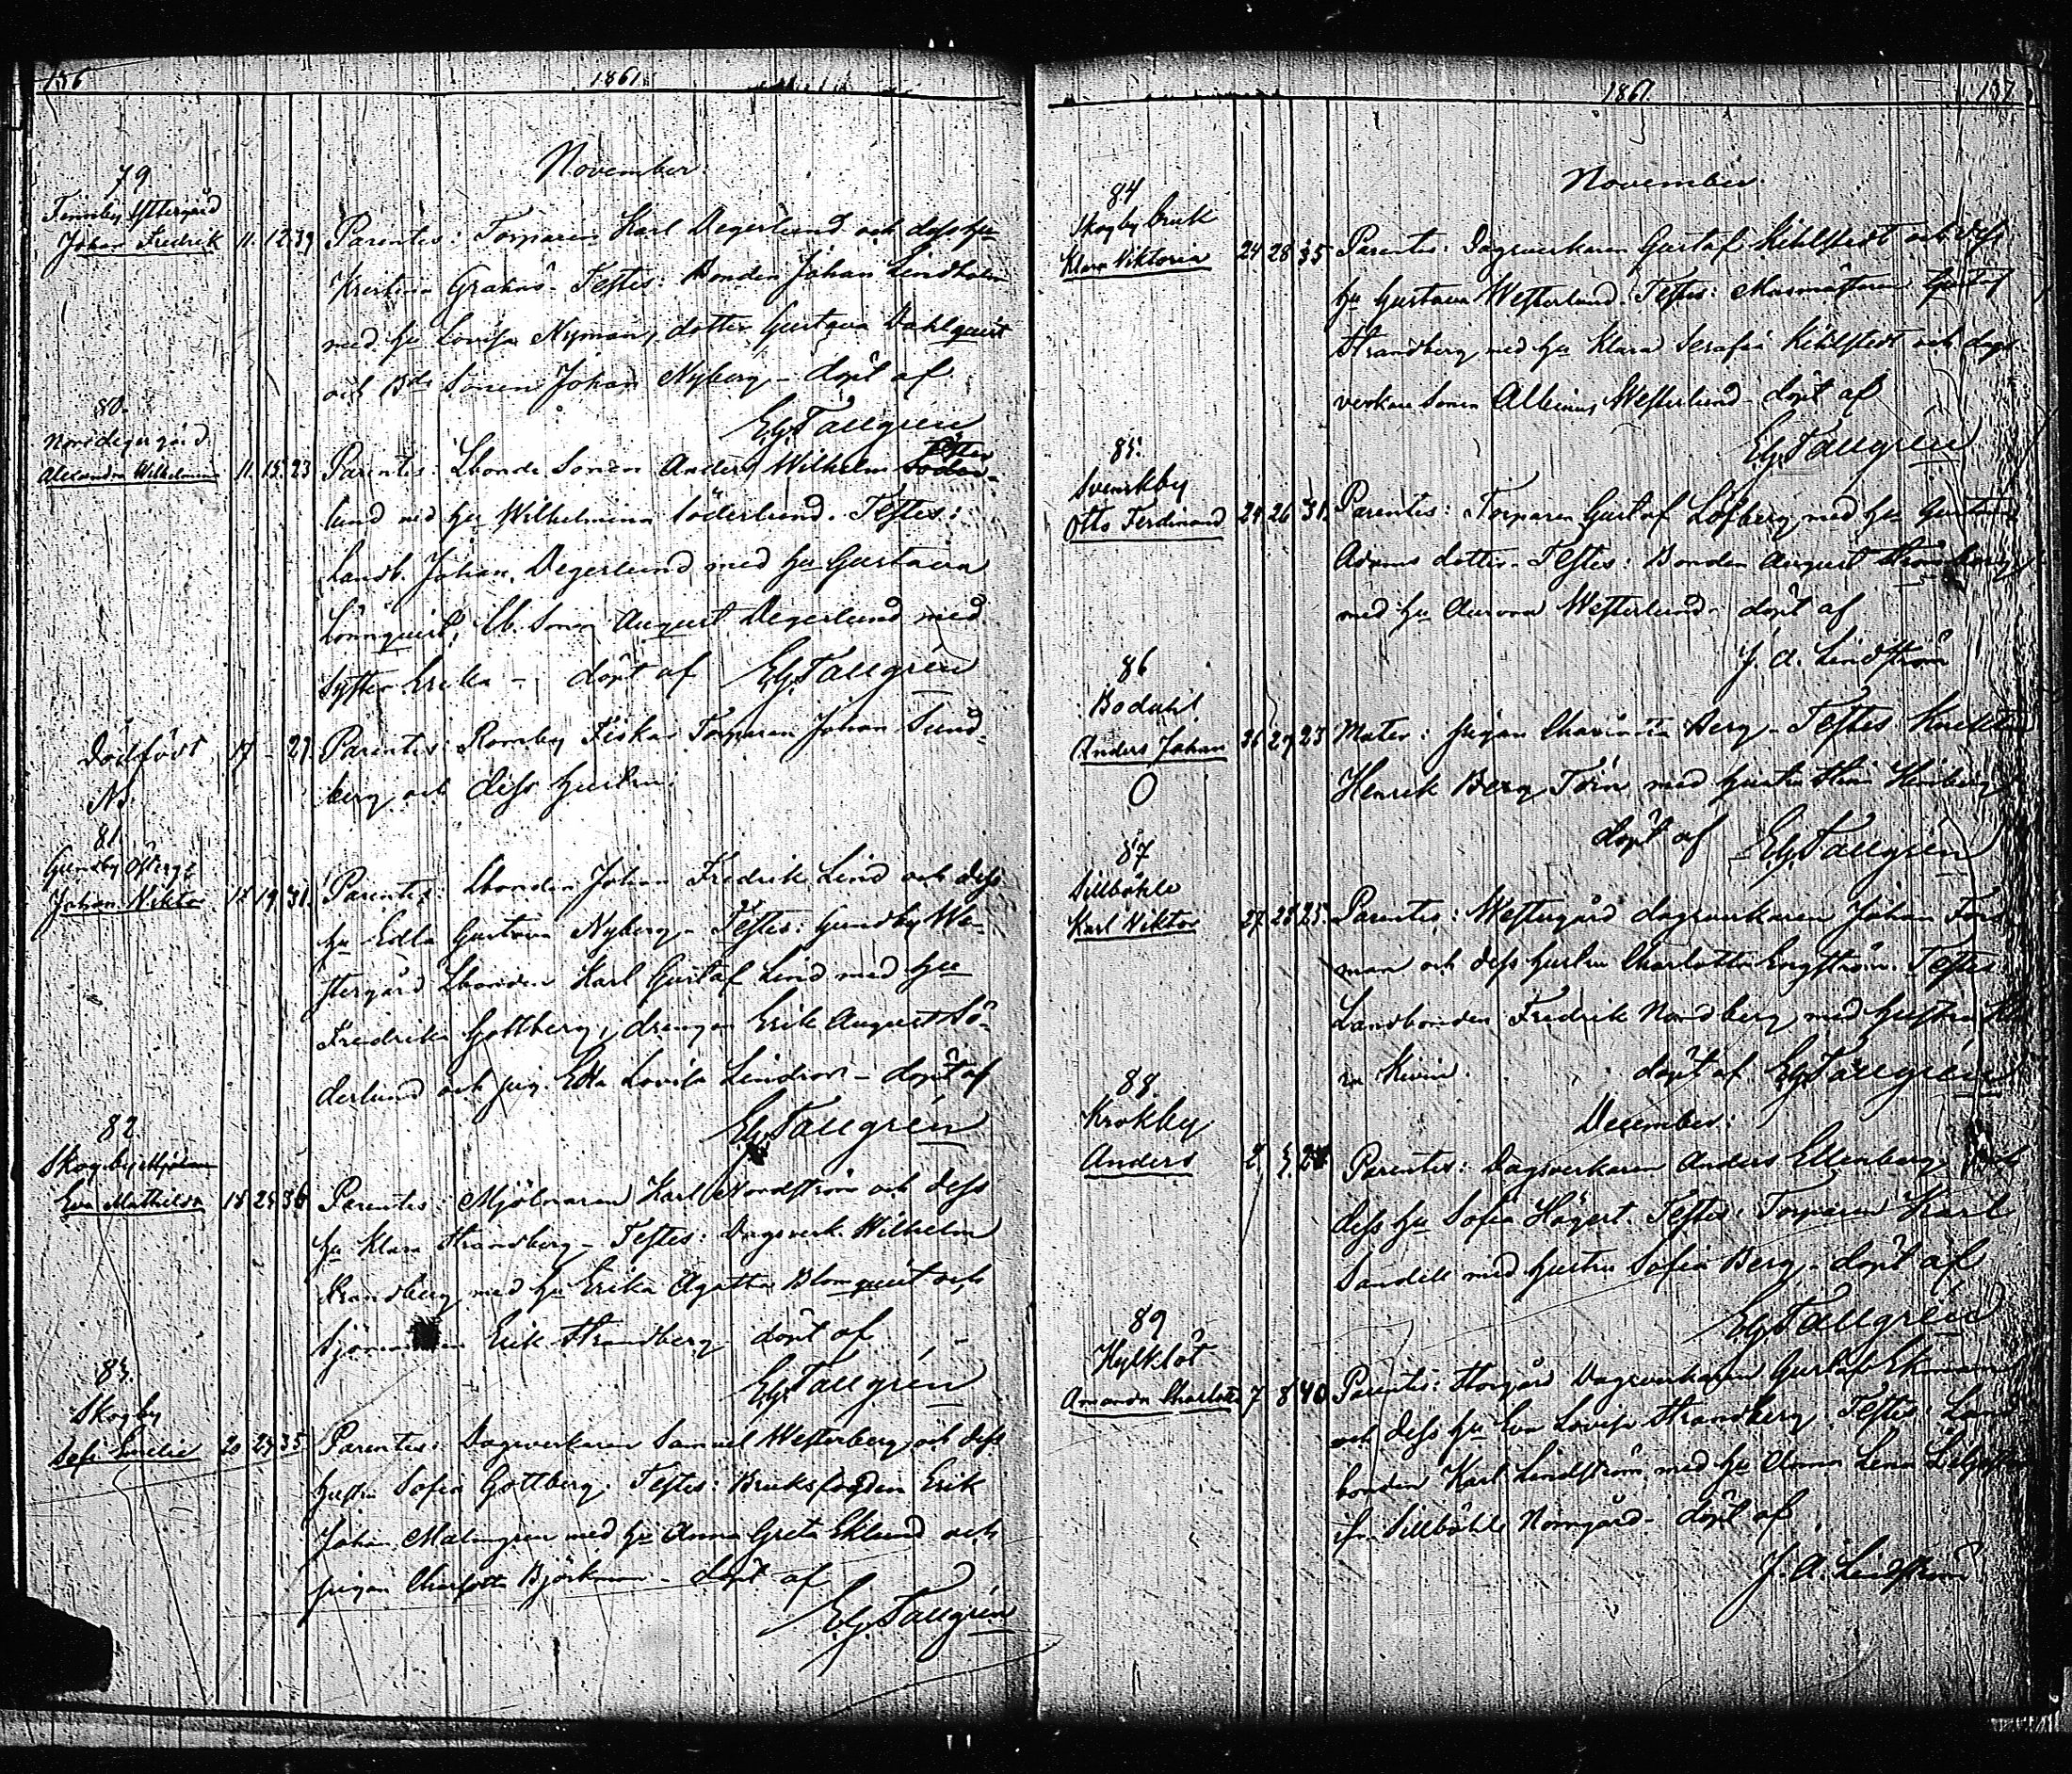 156
1861
November.
79
Finnby Yttergård
Johan Fredrik 11. 12. 39
Parentes: Torparen Karl Degerlund och dess hu
Kristina Grahns - Testes: Bonden Johan Lindholm
med hu Lovisa Nyman, dotter Gustava Dahlquist
och Bde Sonen Johan Nyberg - döpt af
E.G. Tallgrén
80.
Alexandra Wilhelmina 11. 15. 23
Parentes: Lbonde Sonen Anders Wilhelm
lund med hu Wilhelmina Söderlund. Testes:
Landb. Johan Degerlund med hu Gustava
Lönnquist, Lb. Sonen August Degerlund med
Syster Erika - döpt af E.G. Tallgrén
Dödfödt 17 - 27
Parentes: Romby Fiskar Torparen Johan Sund-
berg och dess hustru
81.
Gundby Österg:
Johan Wiktor 18 19 31.
Parentes: Lbonden Johan Fredrik Lind och dess
hu Edla Gustava Nyberg - Testes: Gundby We-
stergård Lbonden Karl Gustaf Lind med hu
Fredrika Gottberg, drengen Erik August Sö-
derlund och pig. Edla Lovisa Lindroos - döpt af
E.G. Tallgrén
82
Skogby
Eva Mathilda 18 24 36
Parentes: Mjölnaren Karl Nordström och dess
hu Klara Strandberg - Testes: Dagsverk. Wilhelm
Strandberg med hu Erika Agatha Blomquist och
Erik Strandberg - döpt af
E.G. Tallgrén
83.
Skogby
Sofi Emelie 20 24 35
Parentes: Dagsverkaren Samuel Westerberg och dess
hustru Sofia Gottberg. Testes: Bruksfogden Erik
Johan Malmgren med hu Anna Greta Eklund och
pigan Charlotta Björkman - döpt af
E.G. Tallgrén
1861.
157
November.
84
Skogby bruk
Klara Wiktoria 24 28 35
Parentes: Dagsverkaren Gustaf Kihlstedt och dess
hu Gustava Westerlund. Testes: Masmästaren Gustaf
Strandberg med hu Klara Serafia Kihlstedt och dags-
verkare Sonen Albinus Westerlund - döpt af
E.G. Tallgrén
85.
Svenskby
Otto Ferdinand 24 26 31.
Parentes: Torparen Gustaf Löfberg med hu Gustava
Adams dotter - Testes: Bonden August Strömberg
med hu Aurora Westerlund - döpt af
J. A. Lindström
86
Bodahl
Anders Johan 29 23
Mater: Pigan Charlotta Berg - Testes
Henrik Berg med hustru
döpt af E.G. Tallgrén
87
Sillböhle
Karl Wiktor 27. 28 25.
Parentes: Westergård dagsverkaren Johan Fors-
man och dess hustru Charlotta Engström. Testes
Landbonden Fredrik Nordberg med hustru Kla
ra Kivin. döpt af E.G. Tallgrén
December:
88
Krokby
Anders
Parentes: Dagsverkaren Anders Ellenberg och
dess hu Sofia Högert. Testes: Torparen Karl
Sandell med hustru Sofia Berg - döpt af
E.G. Tallgrén
89
Kylklöt
Amanda Charlotta 7 8 40
Parentes: Storgård Dagsverkaren Gustaf Ekman
och dess hu Eva Lovisa Strandberg. Testes: Land
bonden Karl Lindström med hu Anna Lena
fr. Sillböhle Norrgård - döpt af
J. A. Lindström